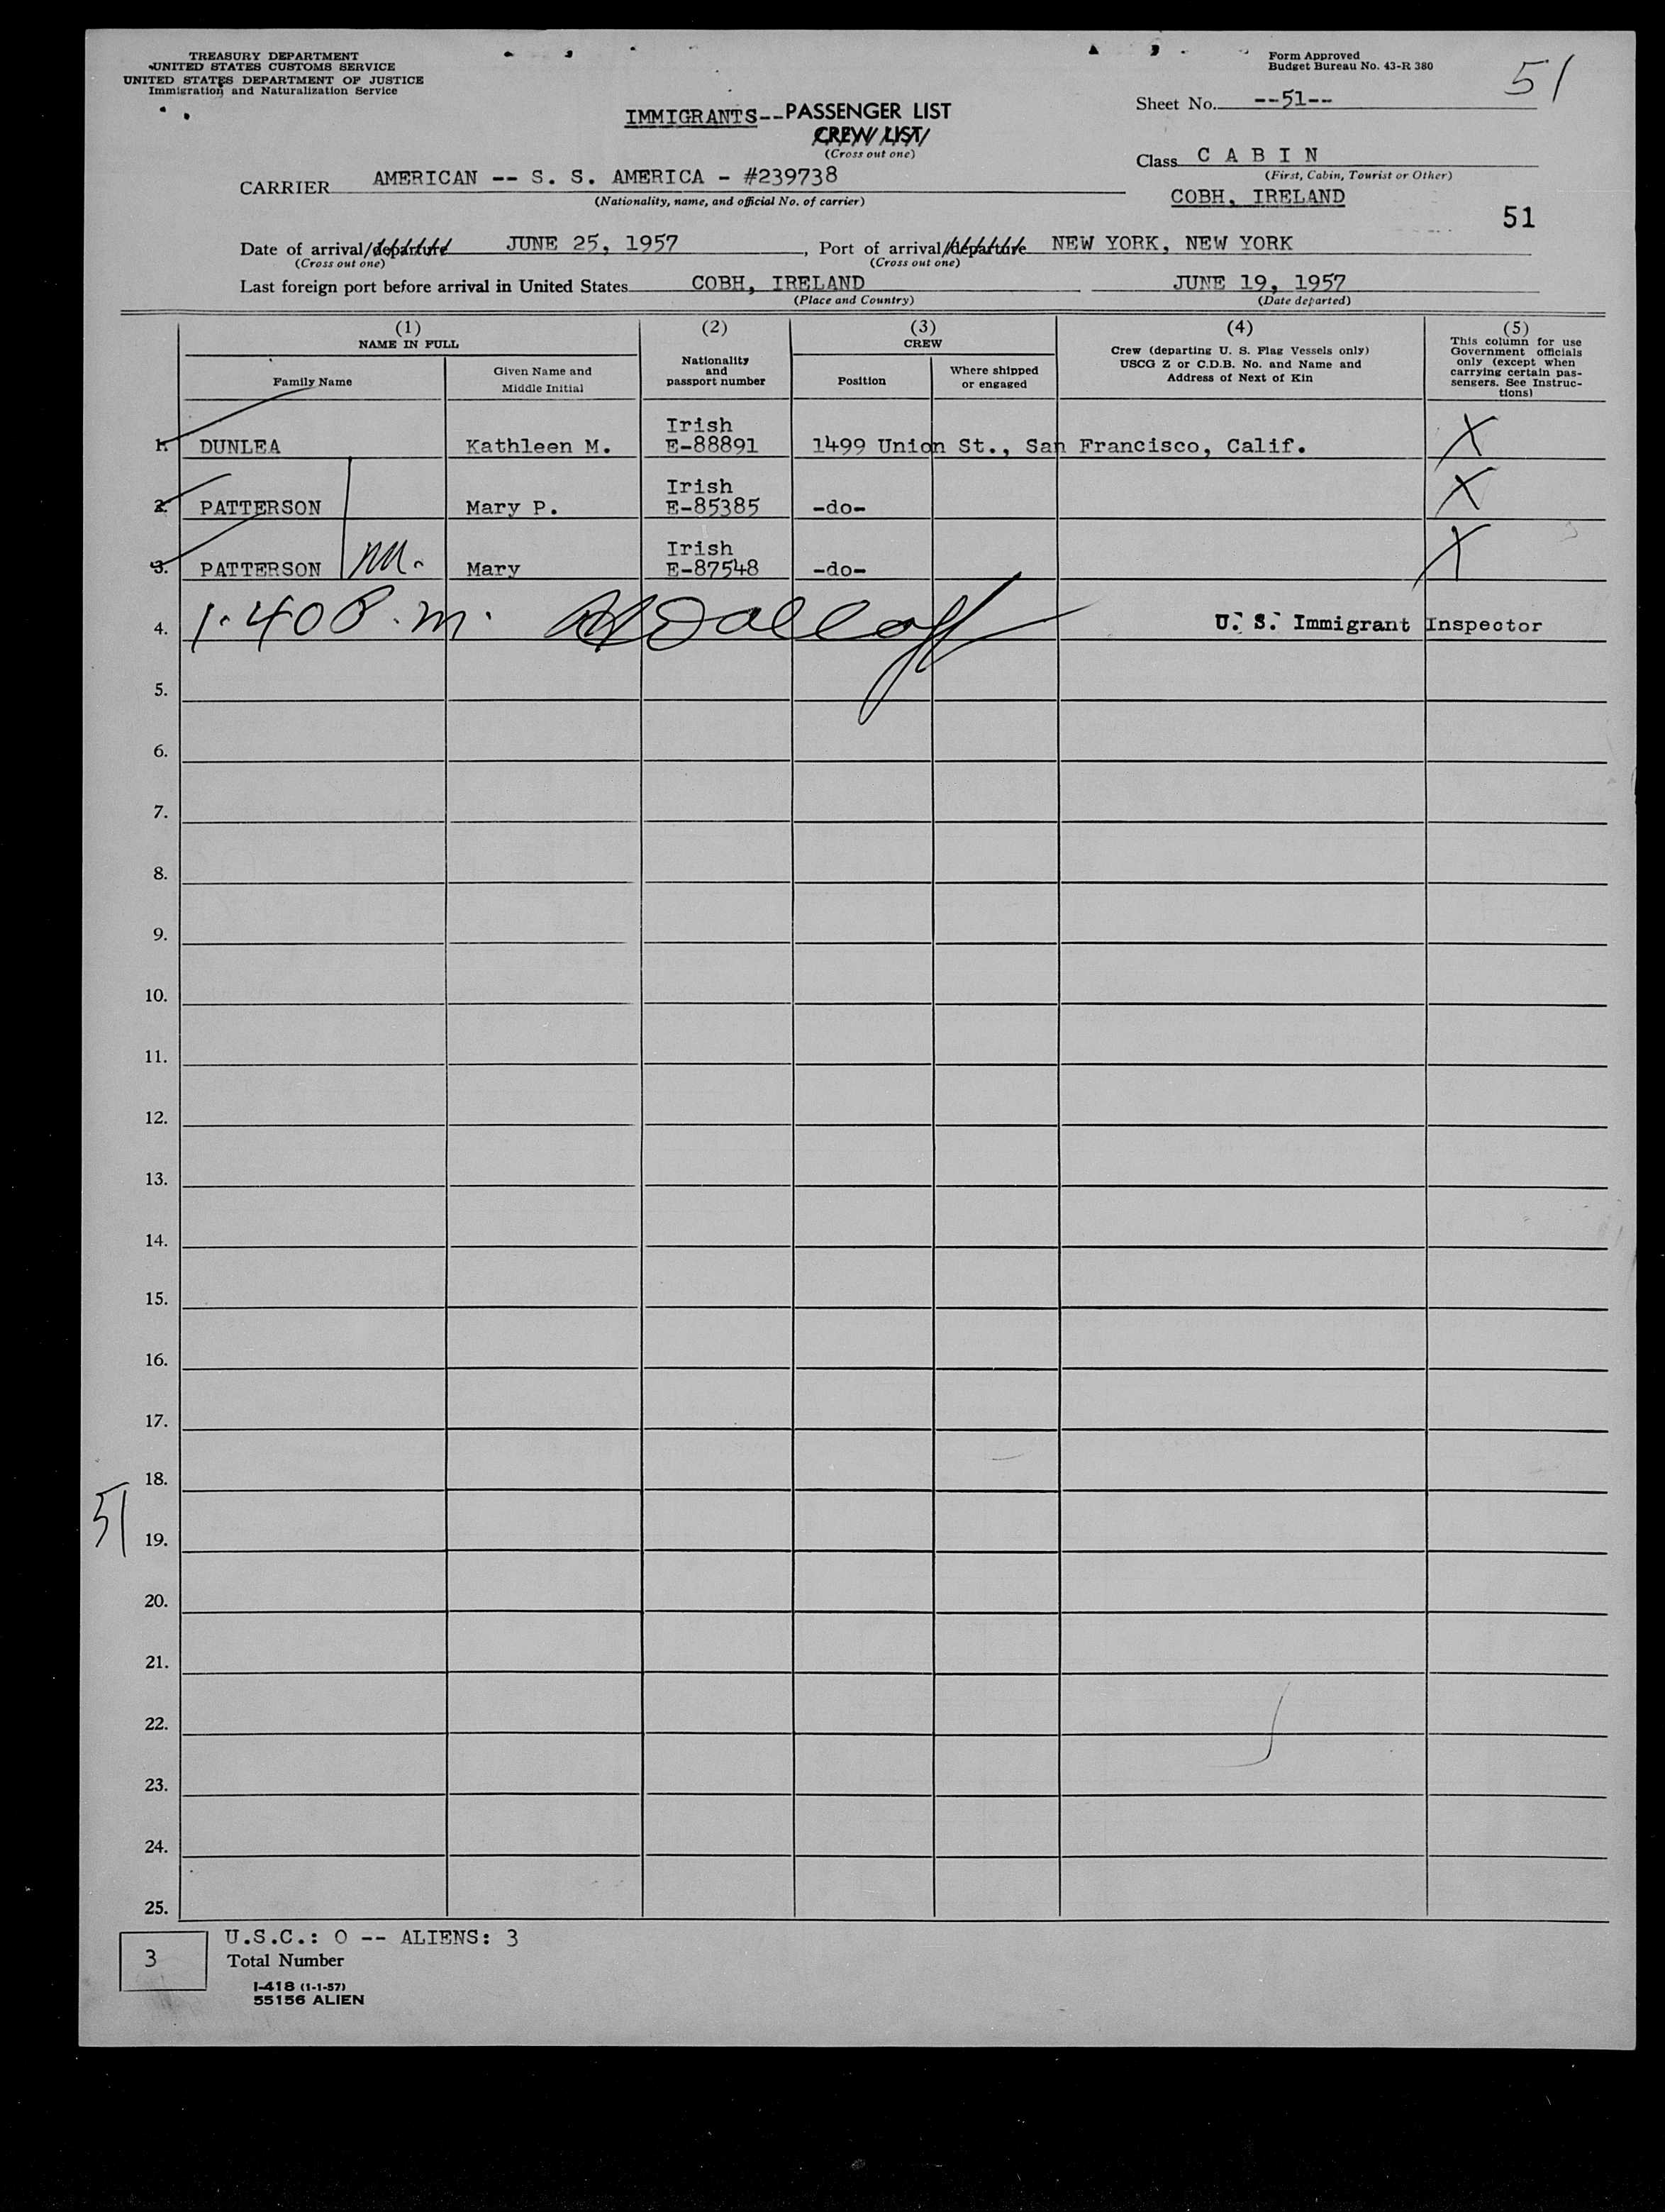 TREASURY DEPARTMENT
UNITED STATES CUSTOMS SERVICE
UNITED STATES DEPARTMENT OF JUSTICE
Immigration and Naturalization Service
Form Approved
Budget Bureau No. 43-R 380
51
Sheet No. --51--
IMMIGRANTS--PASSENGER LIST
CREW LIST
(Cross out one)
Class C A B I N
(First, Cabin, Tourist or Other)
CARRIER AMERICAN -- S. S. AMERICA - #239738
(Nationality, name, and official No. of carrier)
COBH, IRELAND
51
Date of arrival/departure JUNE 25, 1957, Port of arrival/departure NEW YORK, NEW YORK
(Cross out one) (Cross out one)
Last foreign port before arrival in United States COBH, IRELAND JUNE 19, 1957
(Place and Country) (Date departed)
(1)
NAME IN FULL
Family Name
Given Name and
Middle Initial
(2)
Nationality
and
passport number
(3)
CREW
Position
Where shipped
or engaged
(4)
Crew (departing U. S. Flag Vessels only)
USCG Z or C.D.B. No. and Name and
Address of Next of Kin
(5)
This column for use
Government officials
only (except when
carrying certain pas-
sengers. See Instruc-
tions)
Irish
1. DUNLEA Kathleen M. E-88891 1499 Union St., San Francisco, Calif. X
Irish
2. PATTERSON Mary P. E-85385 -do- X
Irish
3. PATTERSON M. Mary E-87548 -do- X
4. 1.40 P.m. U. S. Immigrant Inspector
5.
6.
7.
8.
9.
10.
11.
12.
13.
14.
15.
16.
17.
18.
51
19.
20.
21.
22.
23.
24.
25.
U.S.C.: 0 -- ALIENS: 3
3 Total Number
I-418 (1-1-57)
55156 ALIEN